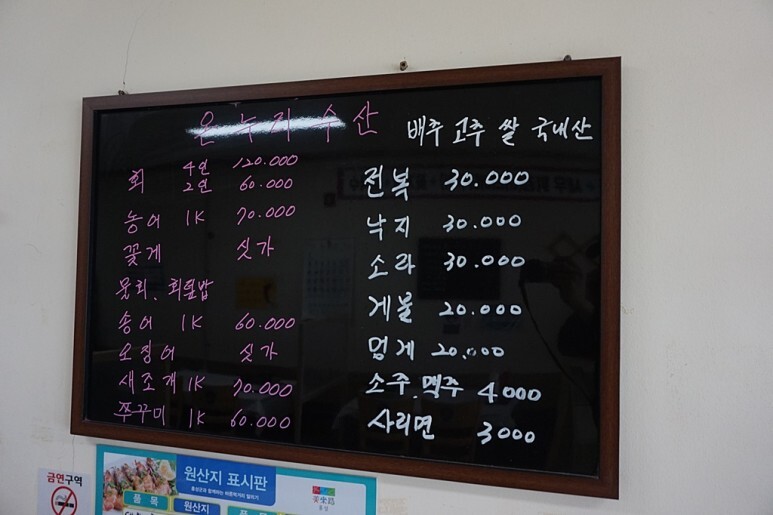 온누리수산
회 4인 120.000
2인 60.000
농어 1K 70.000
꽃게 싯가
물회, 회덮밥
송어 1K 60.000
오징어 싯가
새조개 1K 70.000
쭈꾸미 1K 60.000
배추 고추 쌀 국내산
전복 30.000
낙지 30.000
소라 30.000
게불 20.000
멍게 20.000
소주.맥주 4000
사리면 3000
금연구역
원산지 표시판
품목 원산지
홍성